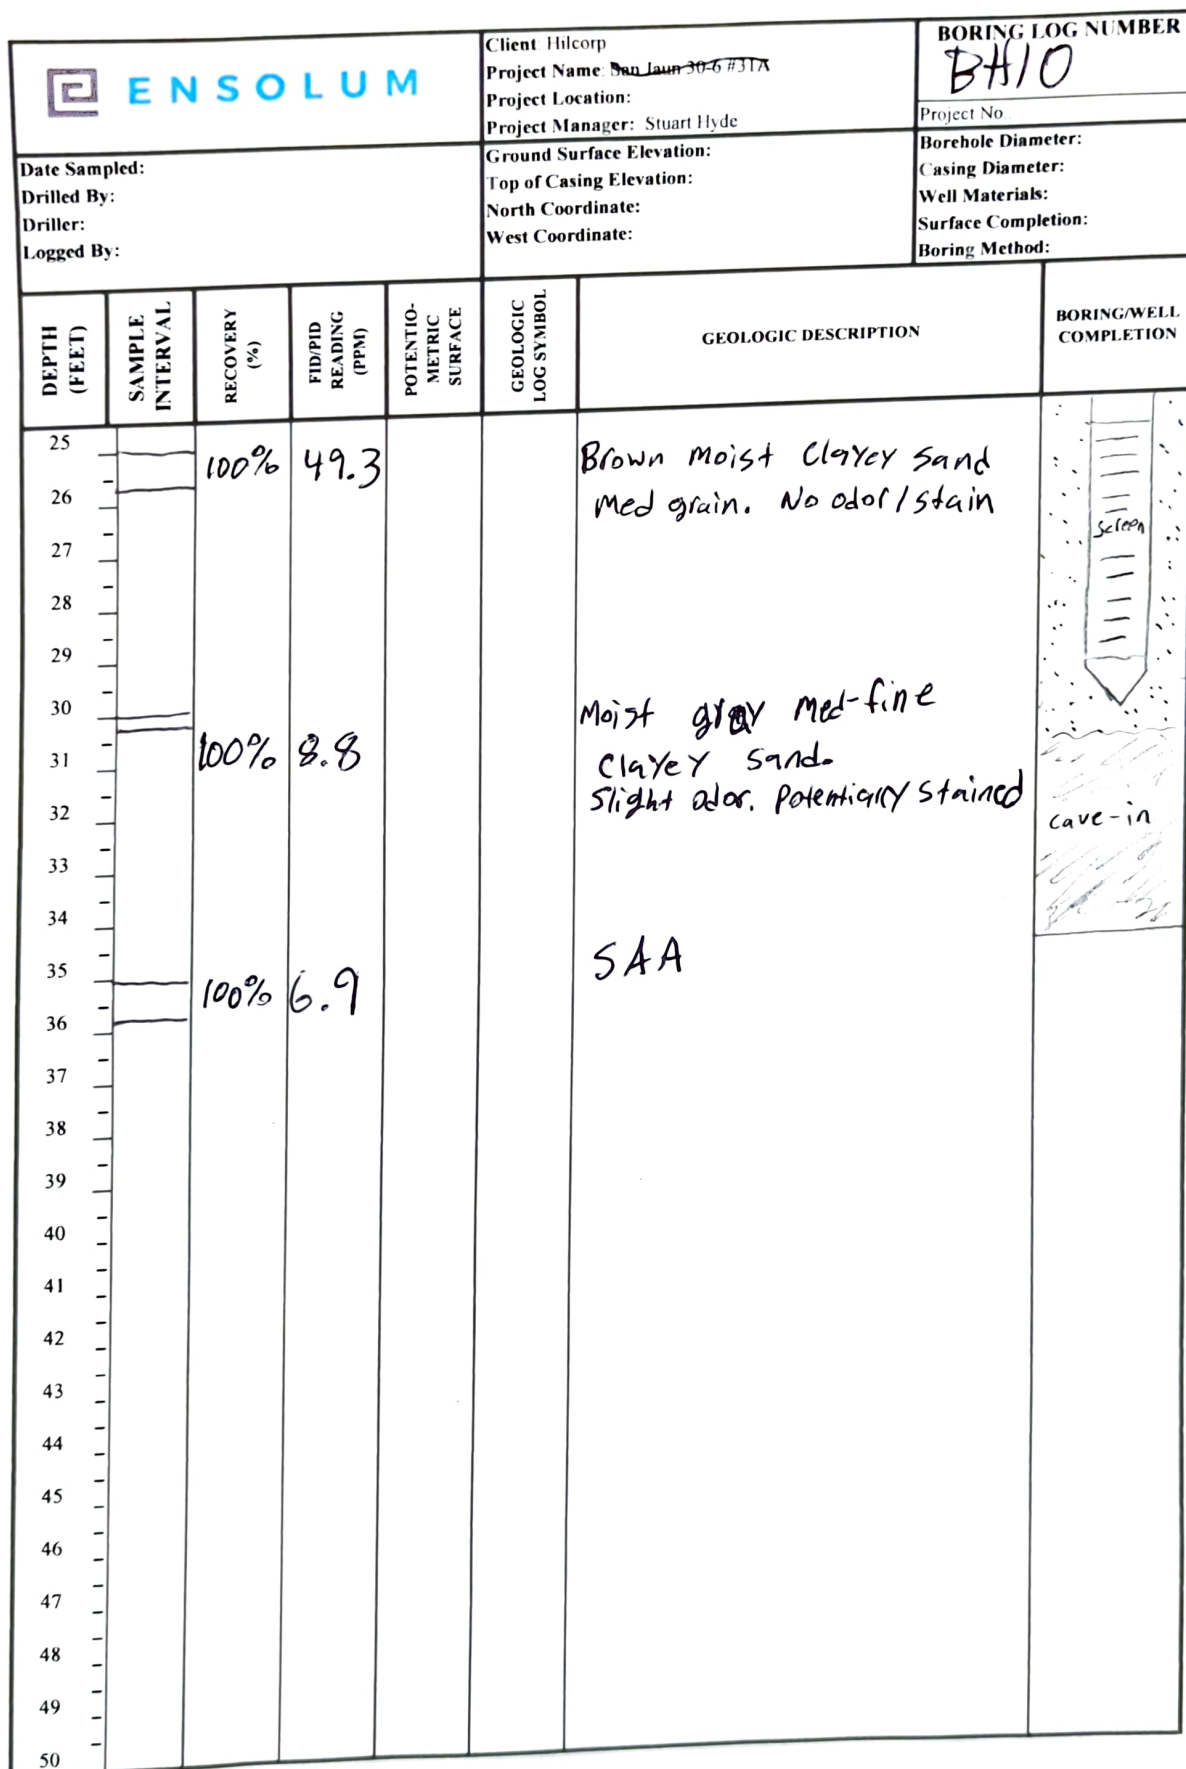 ENSOLUM
Client: Hilcorp
Project Name: San Jaun 30-6 #31A
Project Location:
Project Manager: Stuart Hyde
BORING LOG NUMBER
BH10
Project No.:
Date Sampled:
Drilled By:
Driller:
Logged By:
Ground Surface Elevation:
Top of Casing Elevation:
North Coordinate:
West Coordinate:
Borehole Diameter:
Casing Diameter:
Well Materials:
Surface Completion:
Boring Method:
DEPTH
(FEET)
SAMPLE
INTERVAL
RECOVERY
(%)
FID/PID
READING
(PPM)
POTENTIO-
METRIC
SURFACE
GEOLOGIC
LOG SYMBOL
GEOLOGIC DESCRIPTION
BORING/WELL
COMPLETION
25
100% 49.3 Brown moist Clayey sand
26 med grain. No odor/stain
screen
27
28
29
30 Moist gray med-fine
31 100% 8.8 Clayey sand.
Slight odor. Potentially stained
32 cave-in
33
34
35 SAA
100% 6.9
36
37
38
39
40
41
42
43
44
45
46
47
48
49
50